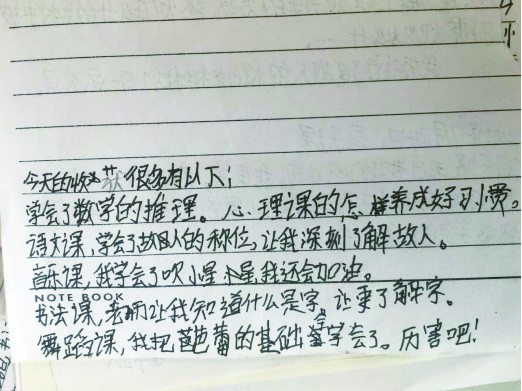 今天的收获很多有以下;
学会了数学的推理。心理课的怎样养成好习惯。
语文课,学会了故人的称位,让我深刻了解故人。
音乐课,我学会了吹小星星,我还会加油。
NOTE BOOK
书法课,老师让我知道什么是字,让更了解字。
舞蹈课,我把芭蕾的基础学会了。厉害吧!